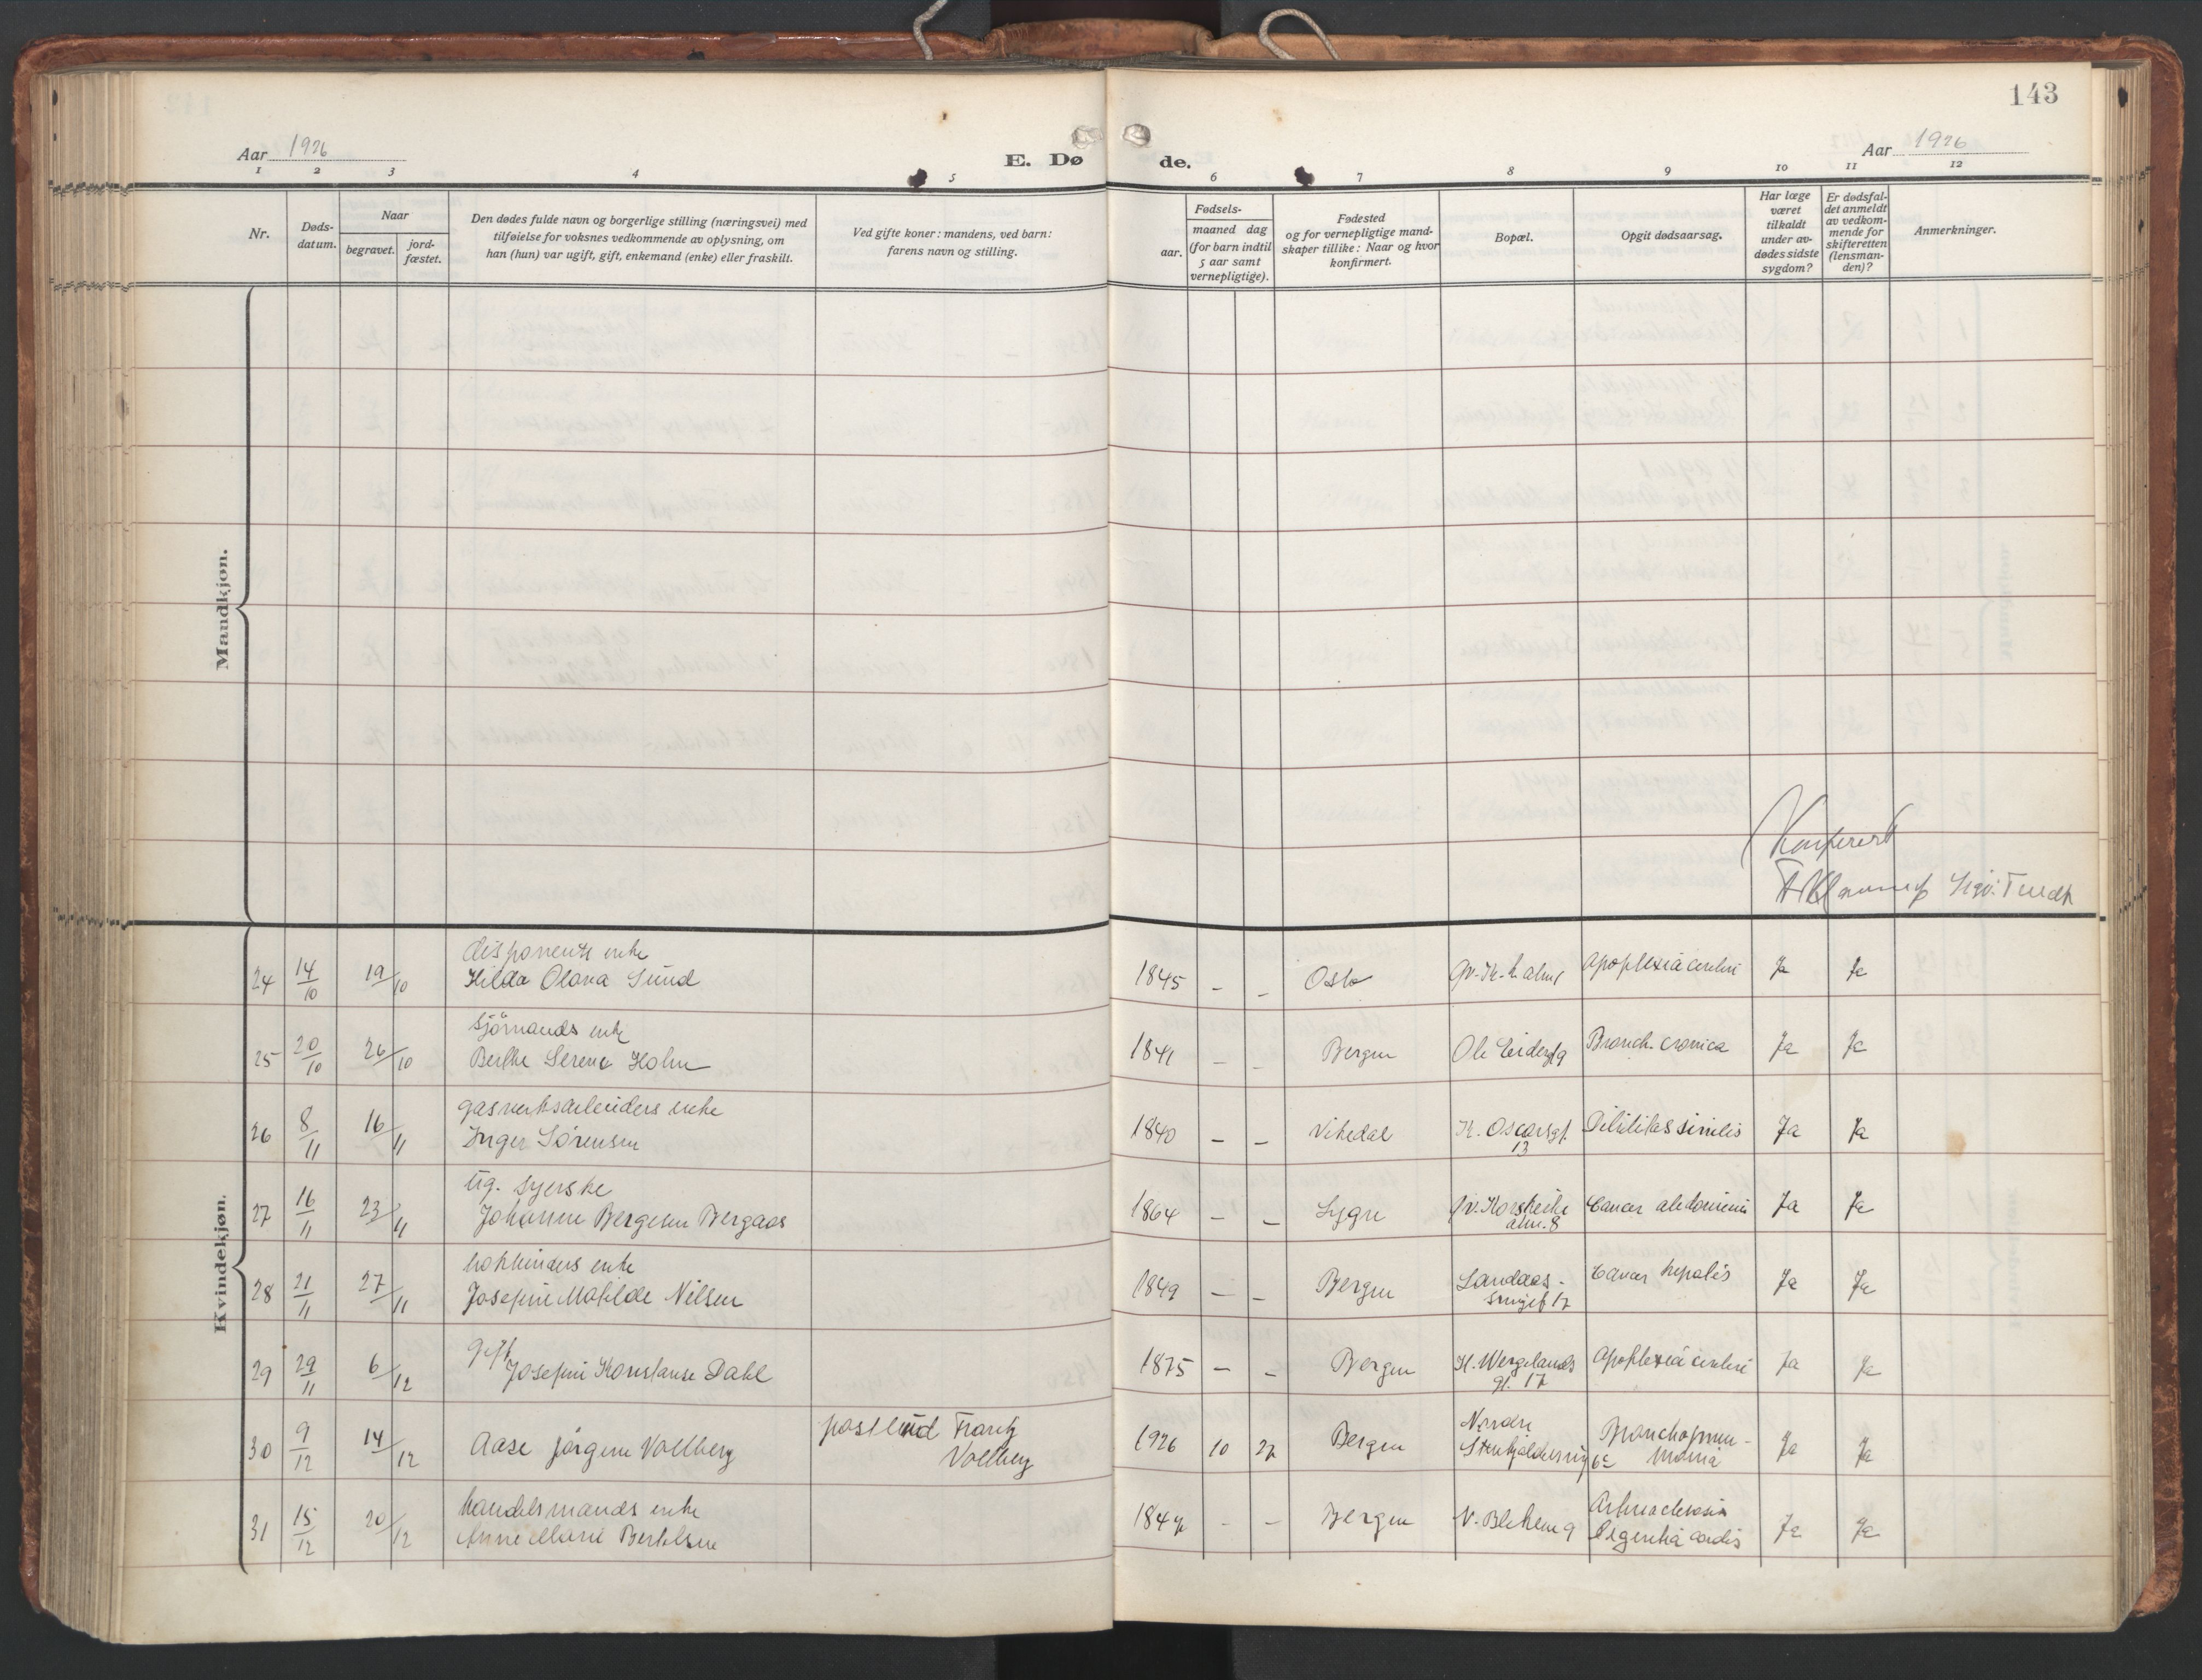 143
Aar 1926
E. Dø de.
Aar 1926
1 2 3 4 5 6 7 8 9 10 11 12
Nr.
Døds-
datum.
Naar
begravet.
jord-
fæstet.
Den dødes fulde navn og borgerlige stilling (næringsvei) med
tilføielse for voksnes vedkommende av oplysning, om
han (hun) var ugift, gift, enkemand (enke) eller fraskilt.
Ved gifte koner: mandens, ved barn:
farens navn og stilling.
Fødsels-
aar.
maaned dag
(for barn indtil
5 aar samt
vernepligtige).
Fødested
og for vernepligtige mand-
skaper tillike: Naar og hvor
konfirmert.
Bopæl.
Opgit dødsaarsag.
Har læge
været
tilkaldt
under av-
dødes sidste
sygdom?
Er dødsfal-
det anmeldt
av vedkom-
mende for
skifteretten
(lensman-
den)?
Anmerkninger.
Mandkjøn.
Konferert
Kvindekjøn.
disponents enke
24 14/10 19/10 Hilda Olava Sund 1845 - - Oslo Apoplexia cerebri Ja Ja
sjömands enke
25 20/10 26/10 Berthe Serene Holm 1841 - - Bergen Bronch. cronica Ja Ja
gasverksarbeiders enke
26 8/11 16/11 Inger Sörensen 1840 - - Vikedal K. Oscarsgt. Debilitas senilis Ja Ja
13
ug. syerske
27 16/11 23/11 Johanne Bergesen Bergaas 1864 - - Lygre Cancer abdominis Ja Ja
alm. 8
bokbinders enke
28 21/11 27/11 Josefine Matilde Nilsen 1849 - - Bergen Landaas- Cancer hepatis Ja Ja
svinget 17
gift
29 29/11 6/12 Josefine Konstanse Dahl 1875 - - Bergen H. Wergelands Apoplexia cerebri Ja Ja
gt. 17
30 9/12 14/12 Aase Jörgine Vollberg postbud Frantz
Vollberg
1926 10 27 Bergen Nordre
Stenkjeldersmug 6c Bronchopneu-
monia Ja Ja
handelsmands enke
31 15/12 20/12 Anne Marie Bertelsen 1847 - - Bergen V. Blekevn 9 Arteriosclerosis
cordis Ja Ja